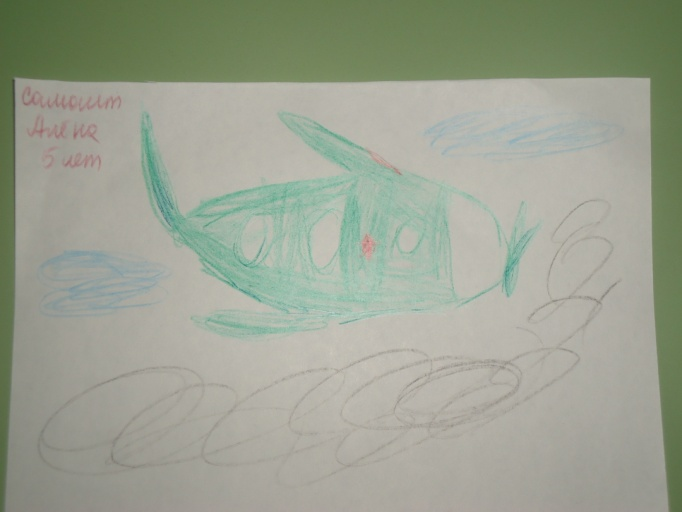 Самолёт
Алёна
5 лет